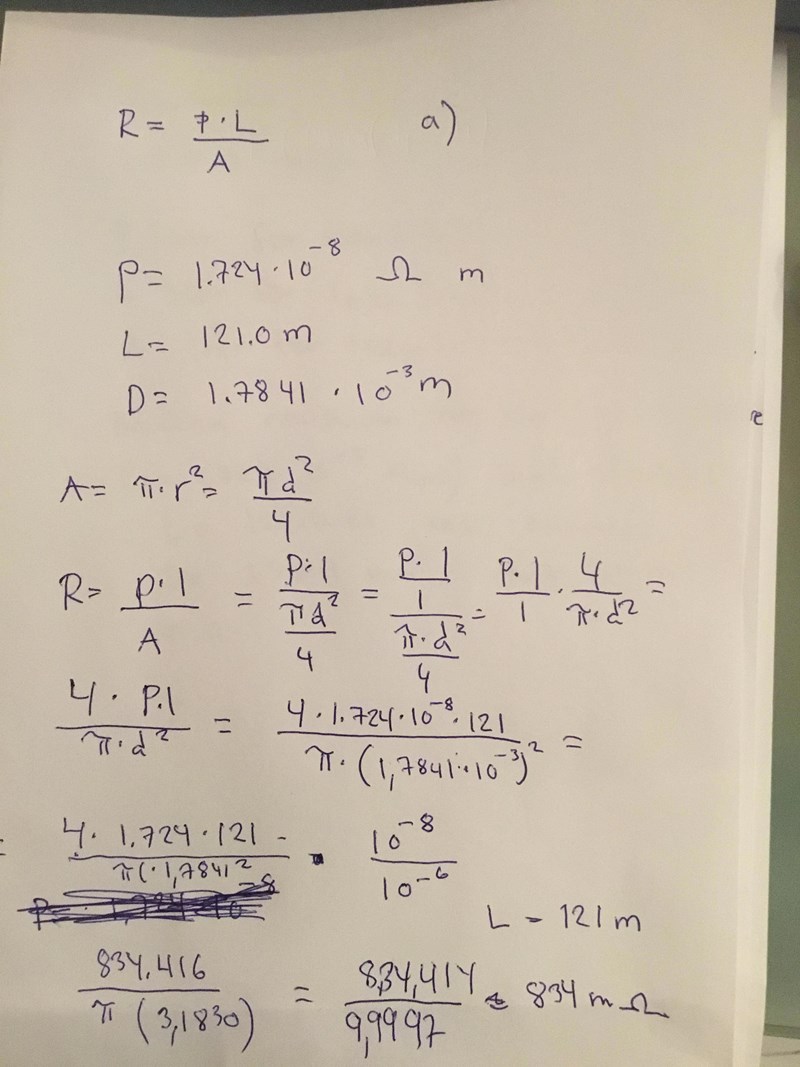 R = p·L / A a)
p = 1.724·10^-8 Ω m
L = 121.0 m
D = 1.7841 · 10^-3 m
A = π·r^2 = πd^2 / 4
R = p·l / A = p·l / (πd^2 / 4) = (p·l / 1) / (π·d^2 / 4) = p·l / 1 · 4 / π·d^2 =
4 · p.l / π·d^2 = 4·1.724·10^-8·121 / π·(1,7841·10^-3)^2 =
= 4· 1.724·121 / π(·1,7841^2 · 10^-8 / 10^-6
L = 121 m
834.416 / π (3,1830) = 834,414 / 9,9997 = 834 m Ω